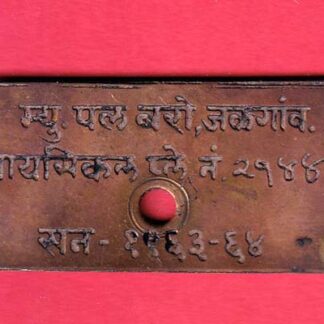 म्यु. पल बरो, जळगांव.
ायसिकल प्ले. नं. २१४४
सन - १९६३-६४